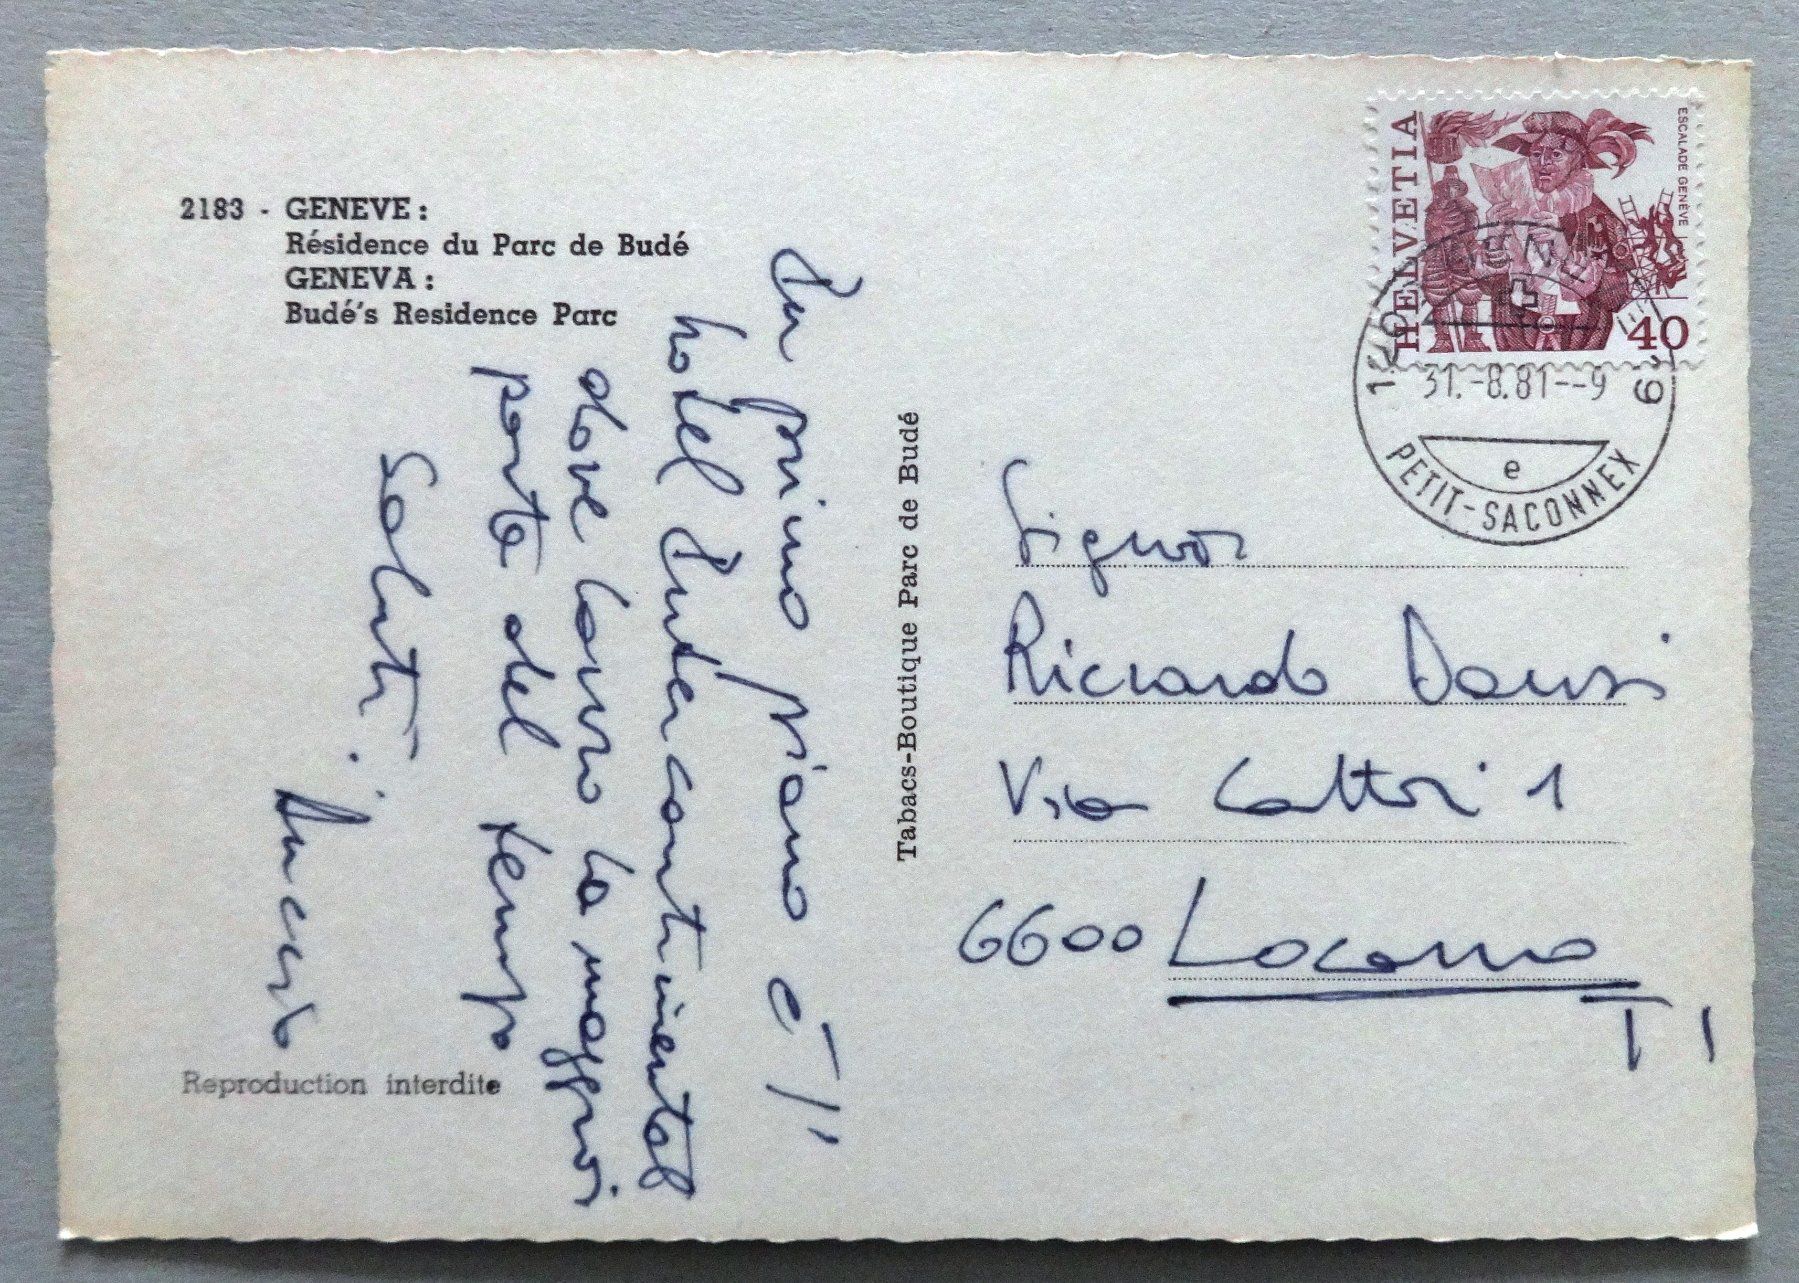 2183 - GENEVE :
Résidence du Parc de Budé
GENEVA :
Budé's Residence Parc
In primo piano è l'
hotel Intercontinental
dove lavoro la maggior
parte del tempo
Saluti.
Reproduction interdite
Tabacs-Boutique Parc de Budé
HELVETIA
ESCALADE GENÈVE
40
31.-8.81--9
e
PETIT-SACONNEX
Signor
Riccardo
Via Cattori 1
6600 Locarno
TI